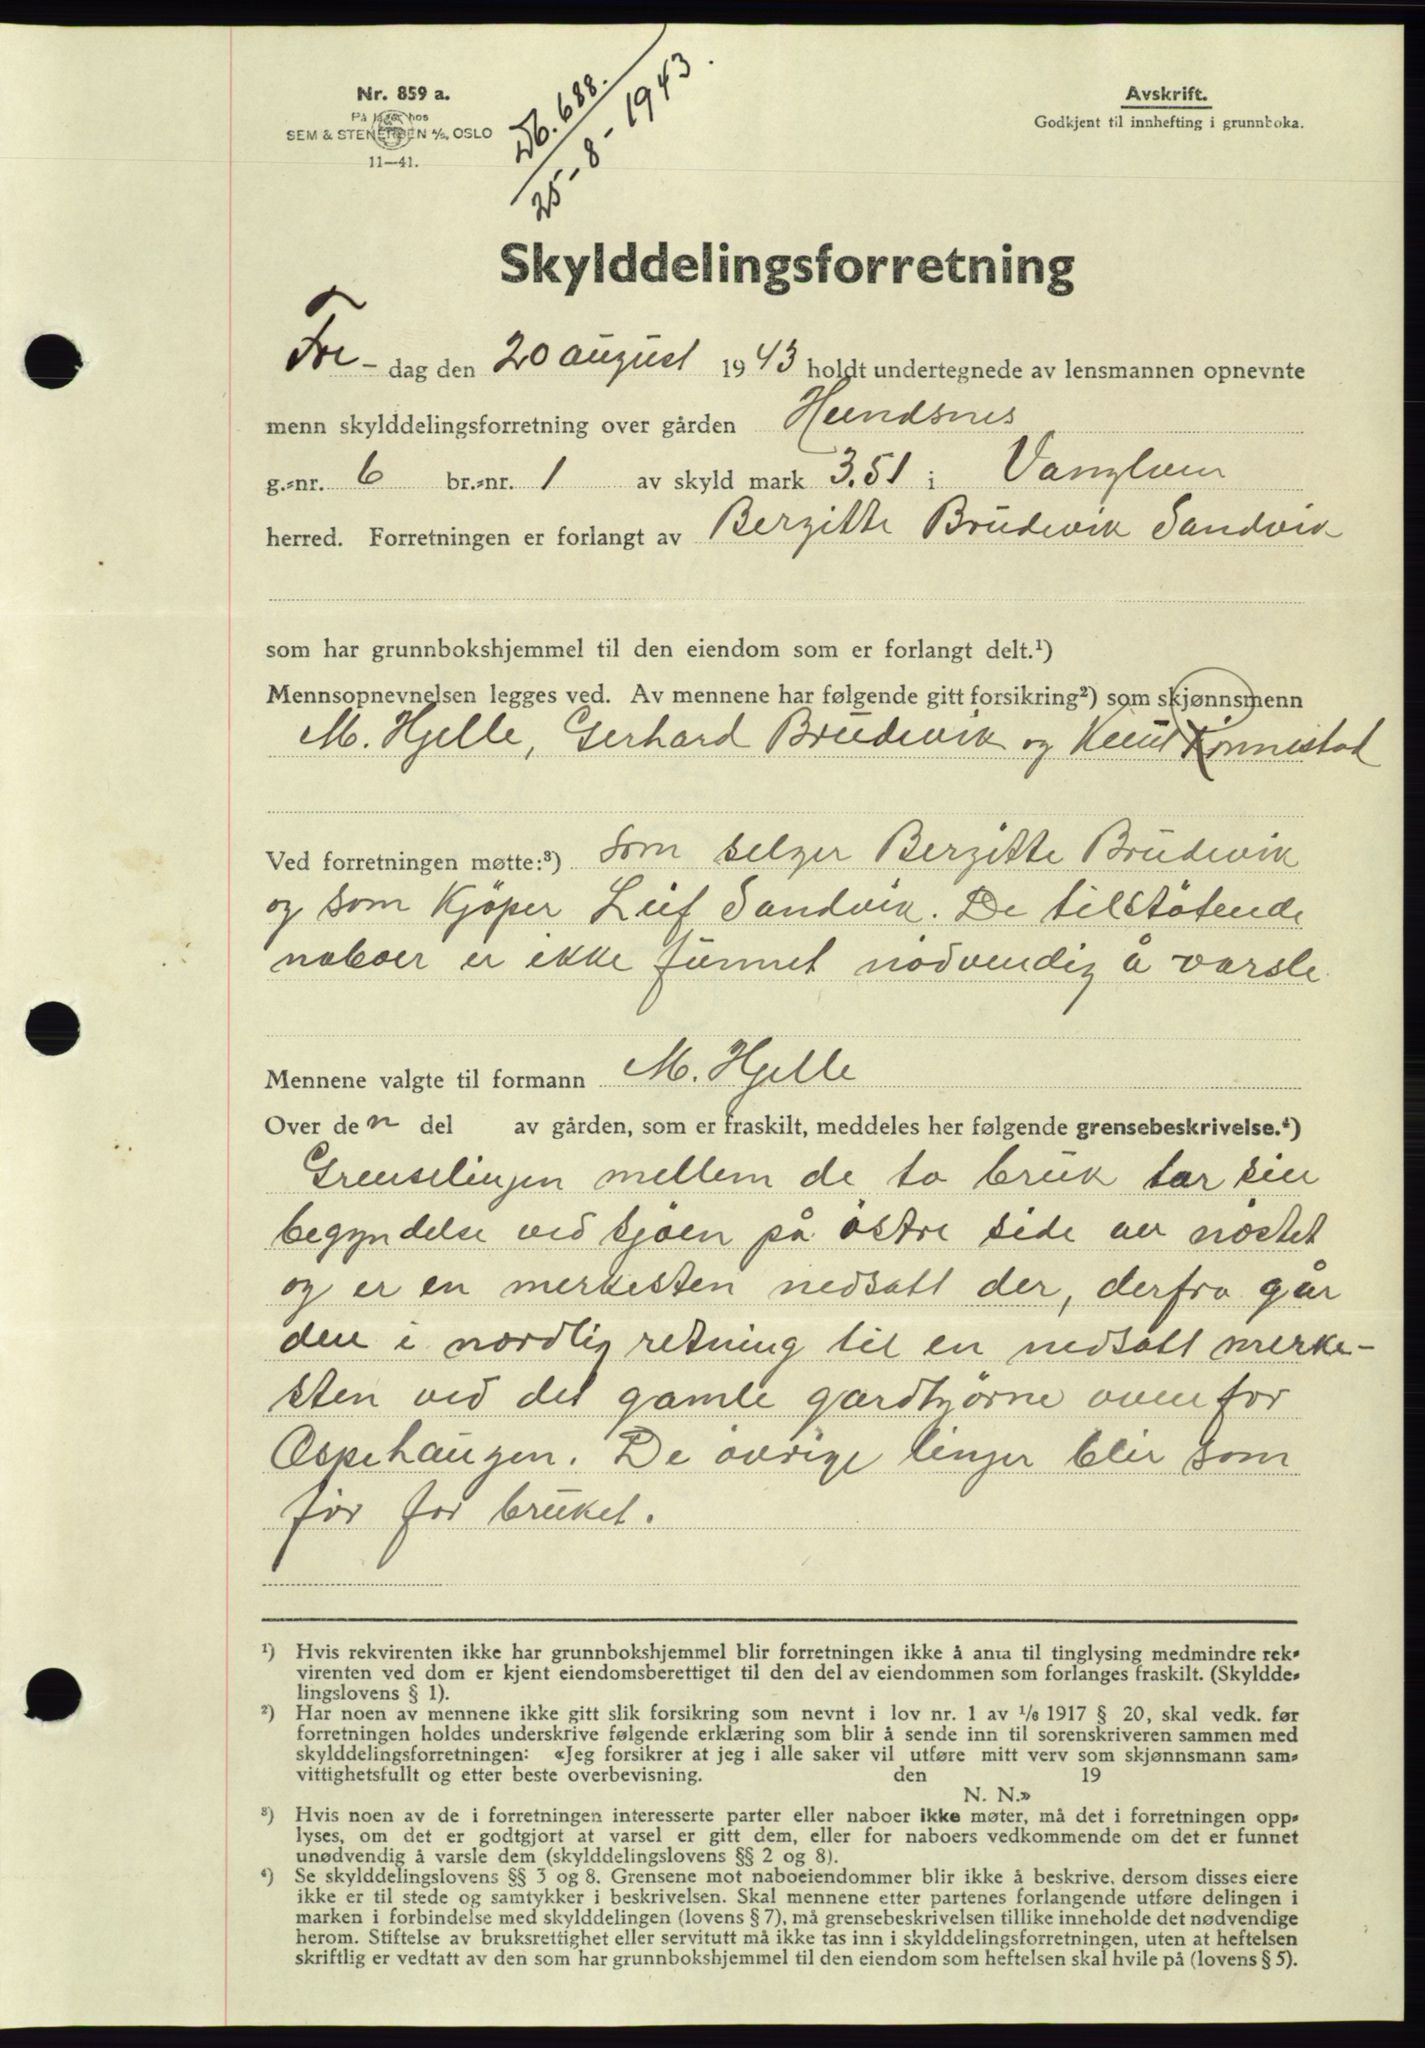 Nr. 859 a.
På lager hos
SEM & STENERSEN A/S, OSLO
11—41.
Db. 688.
25-8-1943.
Avskrift.
Godkjent til innhefting i grunnboka.
Skylddelingsforretning
Fre - dag den 20 august 1943 holdt undertegnede av lensmannen opnevnte
menn skylddelingsforretning over gården Hundsnes
g.-nr. 6 br.-nr. 1 av skyld mark 3.51 i Vanylven
herred. Forretningen er forlangt av Bergitte Brudevik Sandvik
som har grunnbokshjemmel til den eiendom som er forlangt delt.¹)
Mennsopnevnelsen legges ved. Av mennene har følgende gitt forsikring²) som skjønnsmenn
M. Hjelle, Gerhard Brudevik og Knut
Ved forretningen møtte:³) som selger Bergitte Brudevik
og som Kjöper Leif Sandvik. De tilstötende
naboer er ikke funnet nödvendig å varsle
Mennene valgte til formann M. Hjelle
Over den del av gården, som er fraskilt, meddeles her følgende grensebeskrivelse.⁴)
Grenselinjen mellem de to bruk tar sin
begyndelse ved sjöen på östre side av nöstet
og er en merkesten nedsatt der, derfra går
den i nordlig retning til en nedsatt merke-
sten ved det gamle gardhjörne ovenfor
Ospehaugen. De övrige linjer blir som
för for bruket.
¹) Hvis rekvirenten ikke har grunnbokshjemmel blir forretningen ikke å anta til tinglysing medmindre rek-
virenten ved dom er kjent eiendomsberettiget til den del av eiendommen som forlanges fraskilt. (Skyldde-
lingslovens § 1).
²) Har noen av mennene ikke gitt slik forsikring som nevnt i lov nr. 1 av 1/6 1917 § 20, skal vedk. før
forretningen holdes underskrive følgende erklæring som blir å sende inn til sorenskriveren sammen med
skylddelingsforretningen: «Jeg forsikrer at jeg i alle saker vil utføre mitt verv som skjønnsmann sam-
vittighetsfullt og etter beste overbevisning. den 19
N. N.»
³) Hvis noen av de i forretningen interesserte parter eller naboer ikke møter, må det i forretningen opp-
lyses, om det er godtgjort at varsel er gitt dem, eller for naboers vedkommende om det er funnet
unødvendig å varsle dem (skylddelingslovens §§ 2 og 8).
⁴) Se skylddelingslovens §§ 3 og 8. Grensene mot naboeiendommer blir ikke å beskrive, dersom disses eiere
ikke er til stede og samtykker i beskrivelsen. Skal mennene etter partenes forlangende utføre delingen i
marken i forbindelse med skylddelingen (lovens § 7), må grensebeskrivelsen tillike inneholde det nødvendige
herom. Stiftelse av bruksrettighet eller servitutt må ikke tas inn i skylddelingsforretningen, uten at heftelsen
skriftlig er vedtatt av den som har grunnbokshjemmel til den eiendom som heftelsen skal hvile på (lovens § 5).